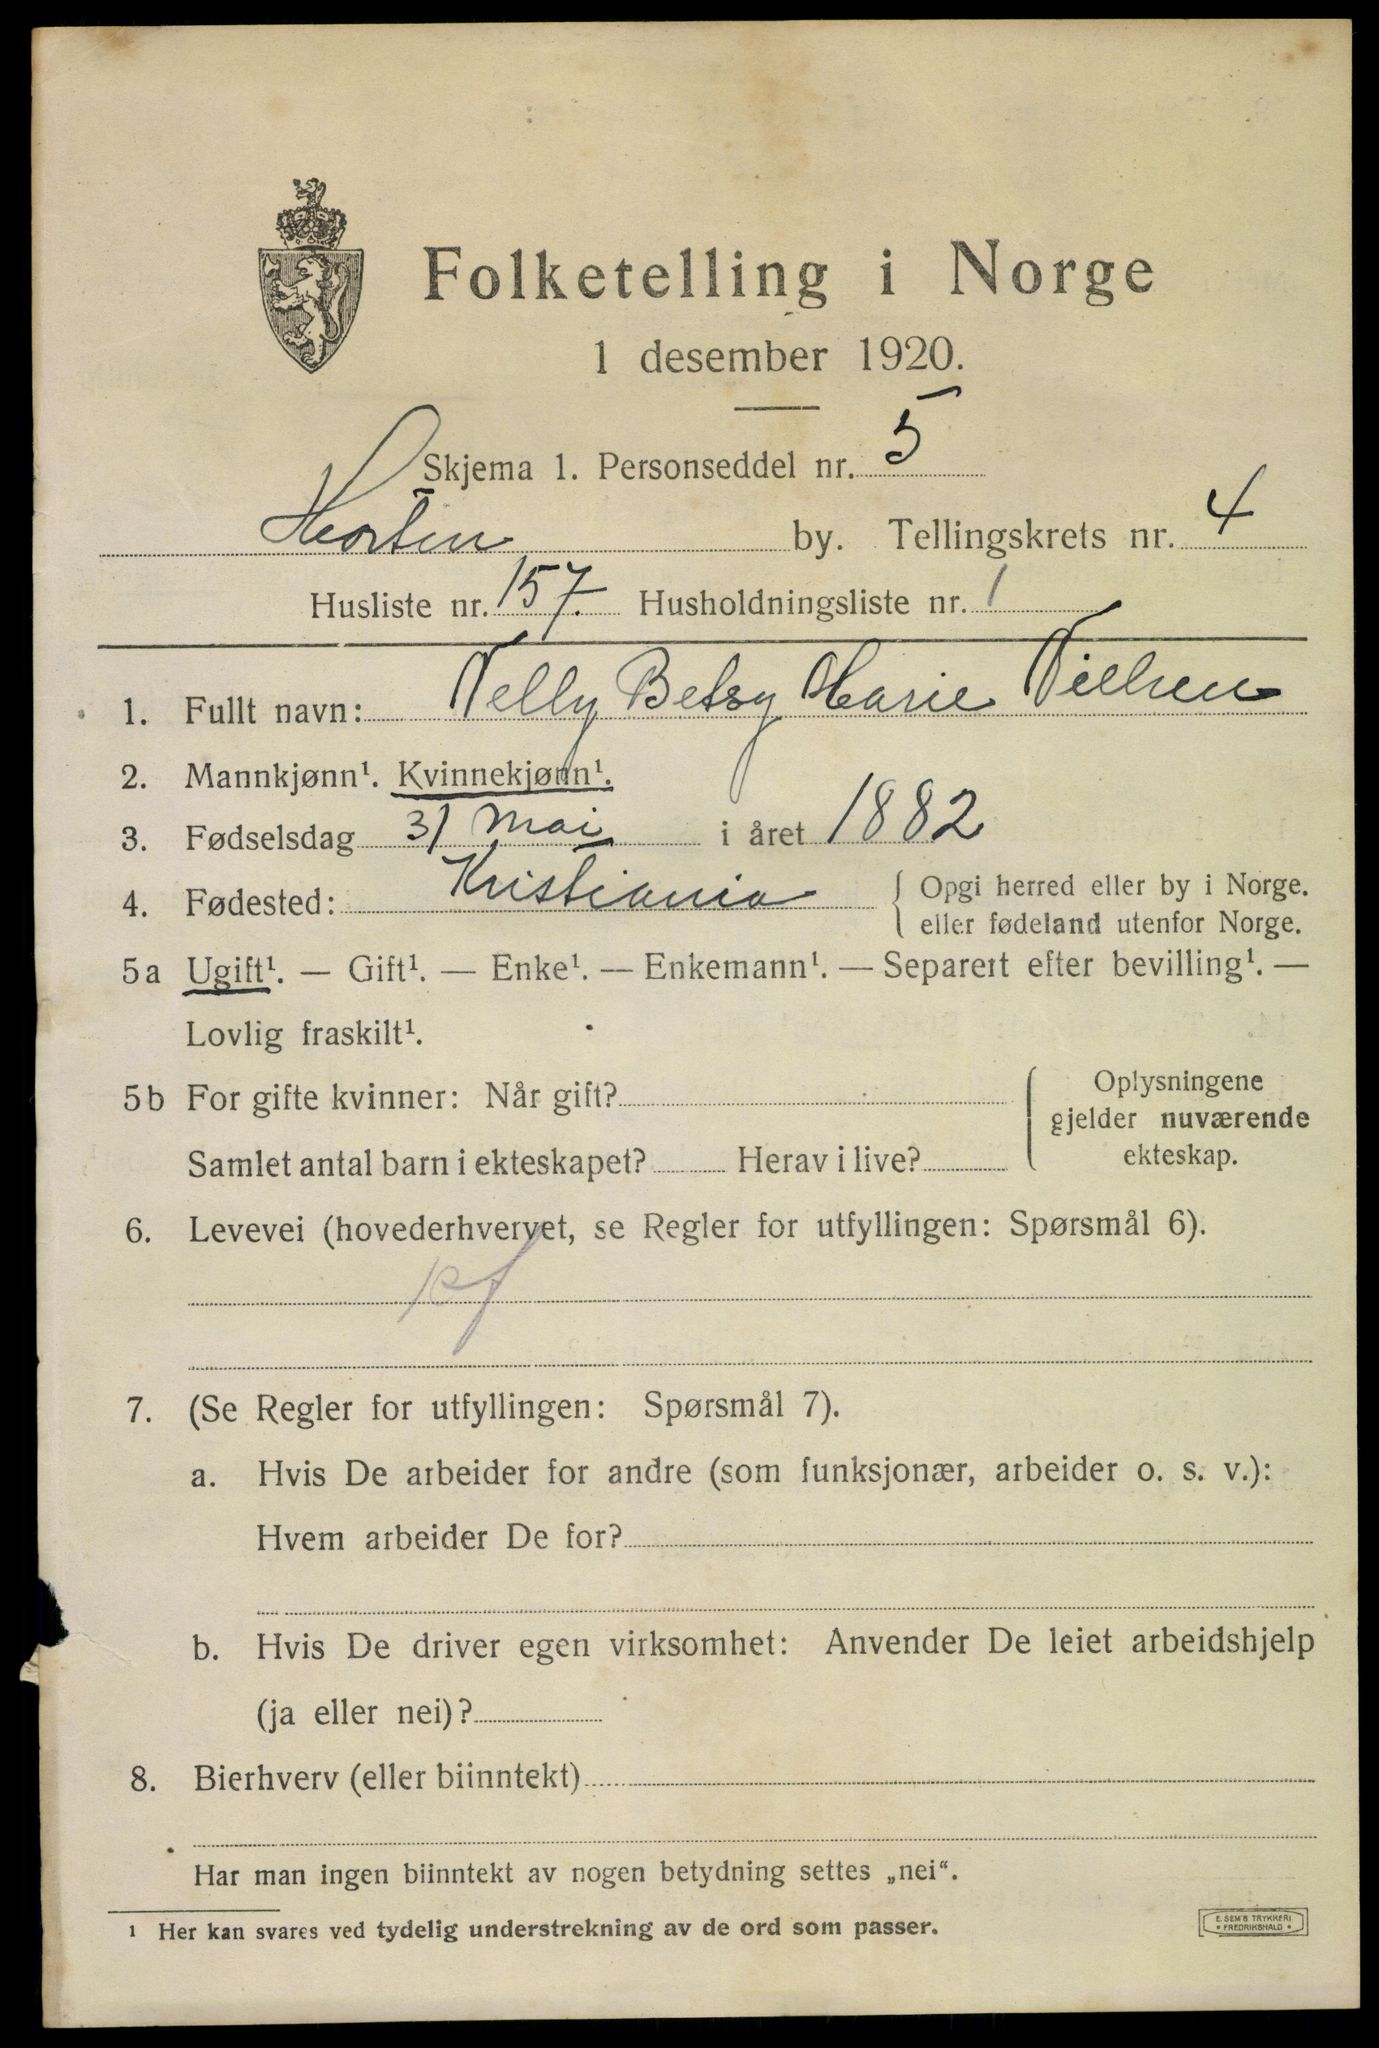 Folketelling i Norge
1 desember 1920.
Skjema 1. Personseddel nr. 5
Horten by. Tellingskrets nr. 4
Husliste nr. 157. Husholdningsliste nr. 1
1. Fullt navn: Nelly Betsy Marie Nielsen
2. Mannkjønn¹. Kvinnekjønn¹.
3. Fødselsdag 31 Mai i året 1882
4. Fødested: Kristiania { Opgi herred eller by i Norge.
eller fødeland utenfor Norge.
5a Ugift¹. — Gift¹. — Enke¹. — Enkemann¹. — Separert efter bevilling¹. —
Lovlig fraskilt¹.
5b For gifte kvinner: Når gift? { Oplysningene
gjelder nuværende
Samlet antal barn i ekteskapet? Herav i live? ekteskap.
6. Levevei (hovederhvervet, se Regler for utfyllingen: Spørsmål 6).
7. (Se Regler for utfyllingen: Spørsmål 7).
a. Hvis De arbeider for andre (som funksjonær, arbeider o. s. v.):
Hvem arbeider De for?
b. Hvis De driver egen virksomhet: Anvender De leiet arbeidshjelp
(ja eller nei)?
8. Bierhverv (eller biinntekt)
Har man ingen biinntekt av nogen betydning settes „nei“.
¹ Her kan svares ved tydelig understrekning av de ord som passer.
E. SEM'S TRYKKERI
• FREDRIKSHALD •